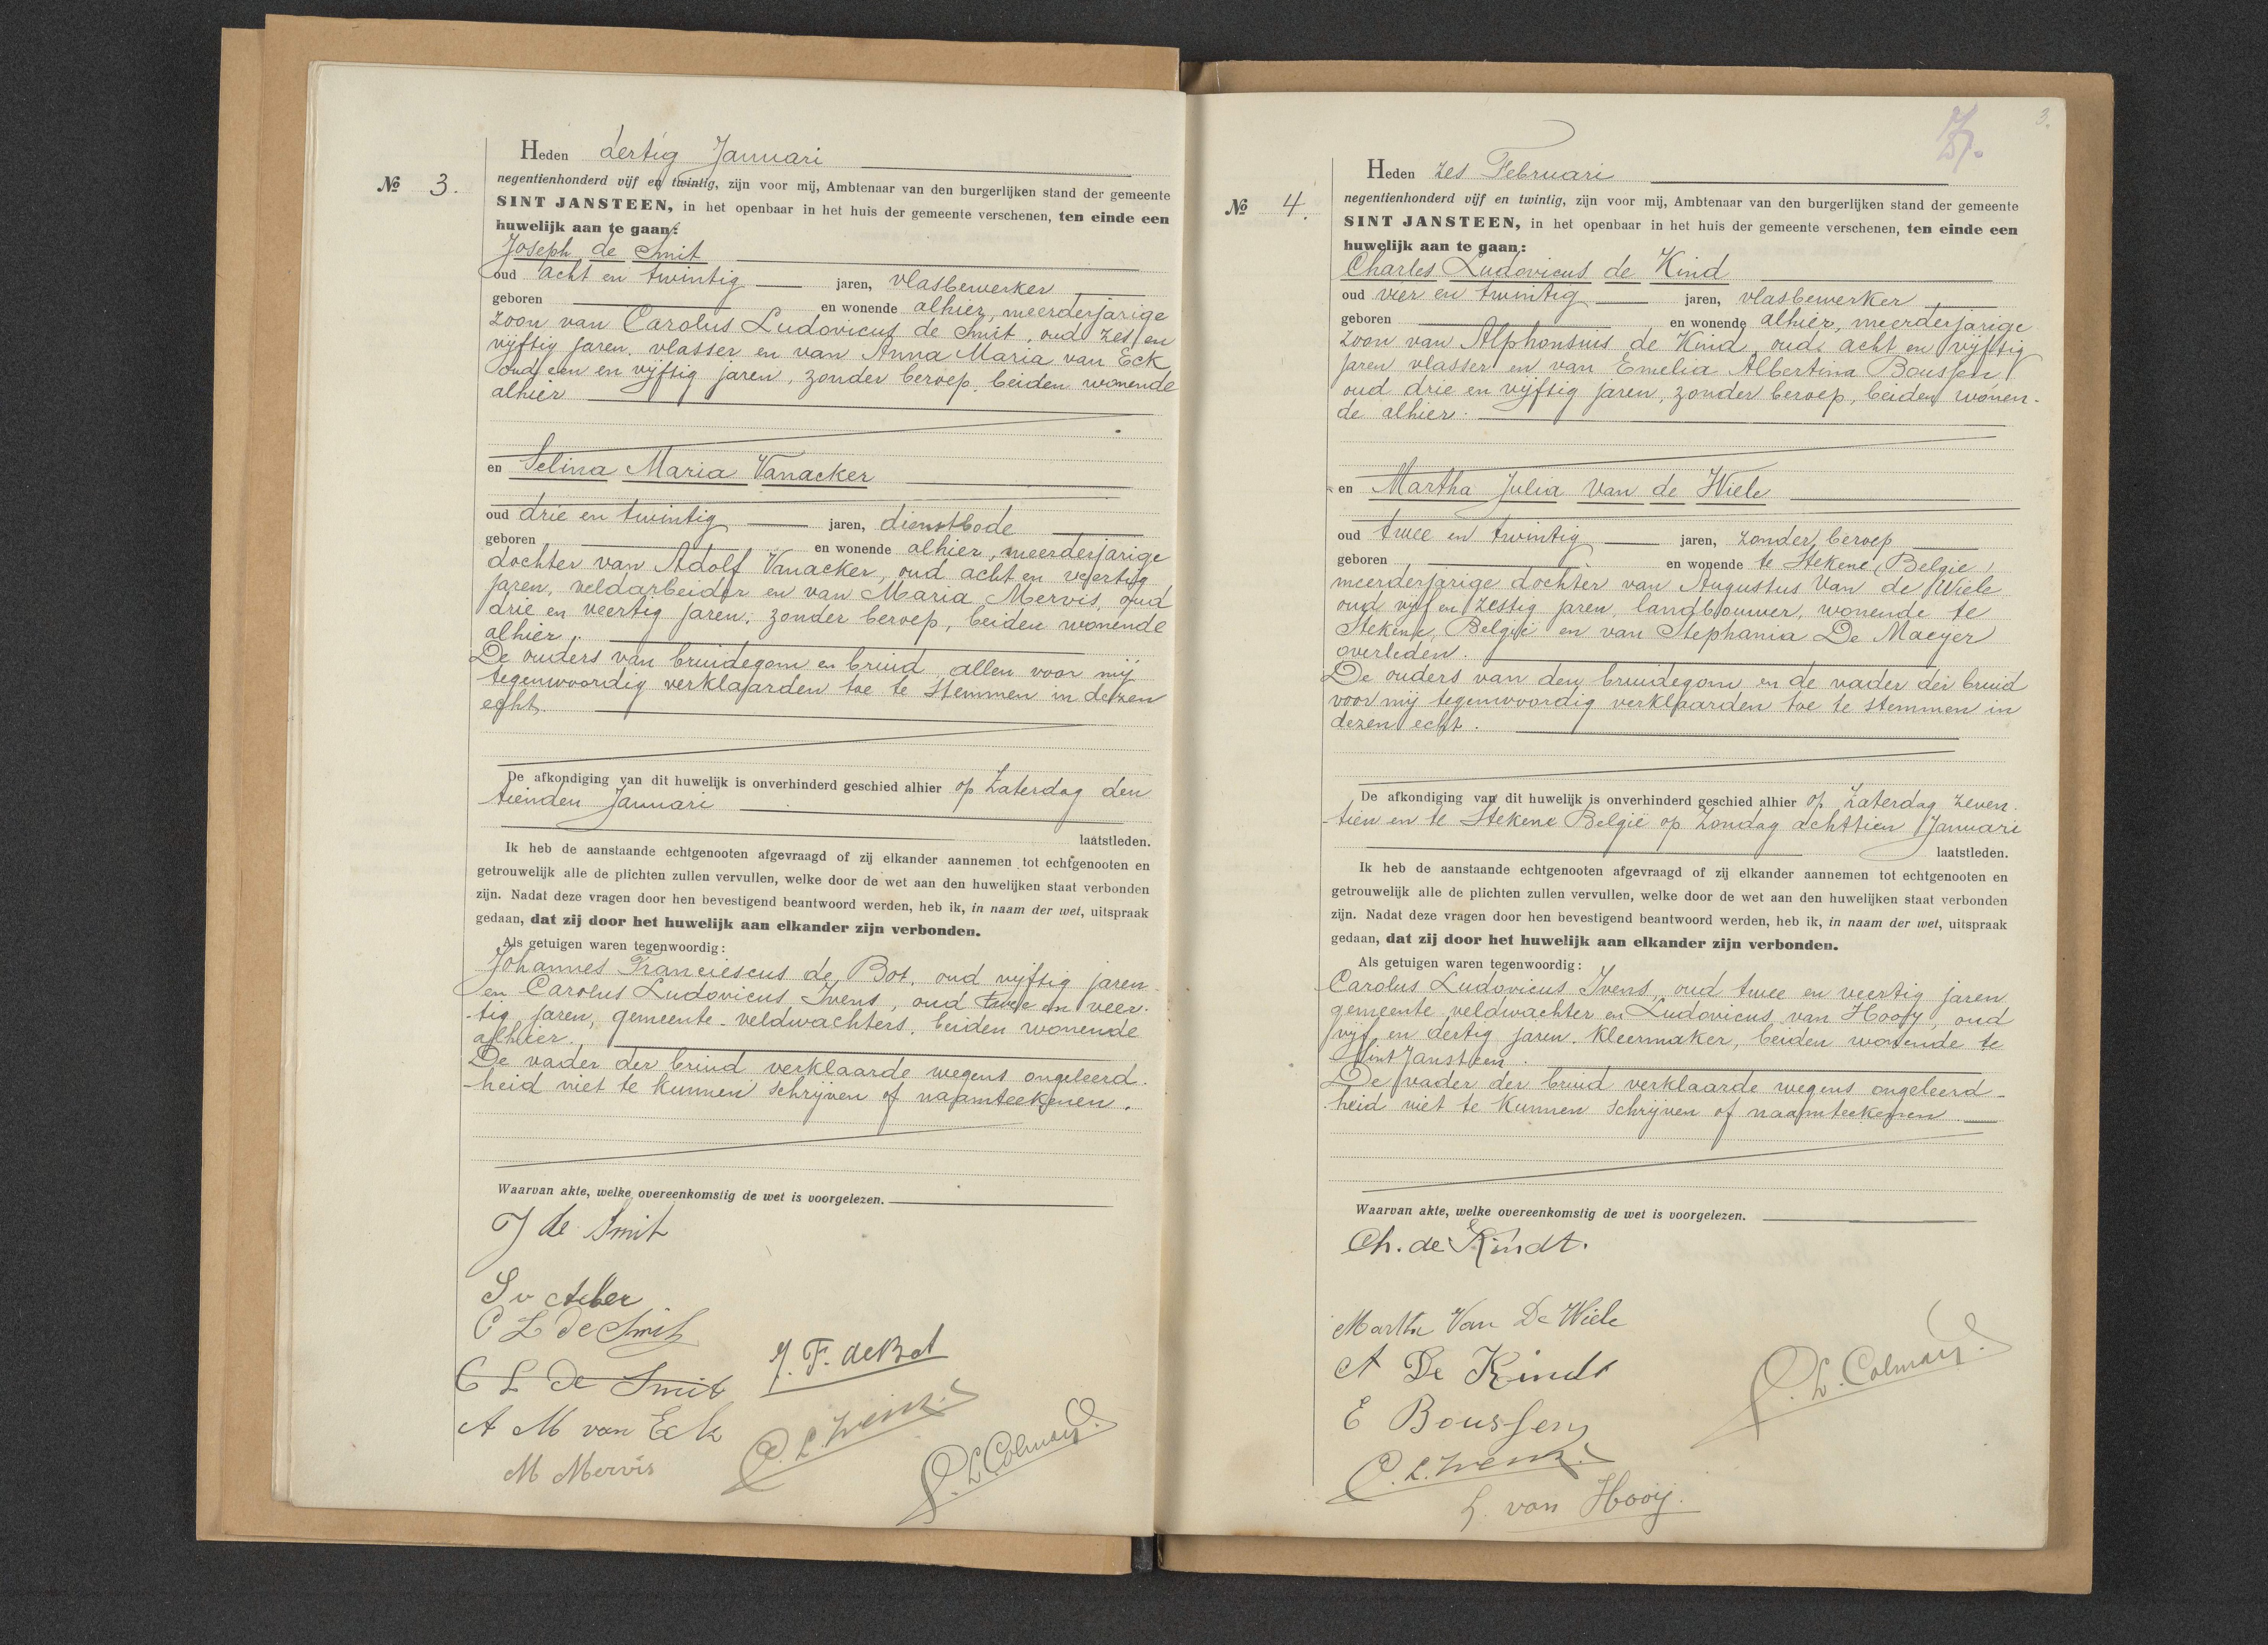 Heden dertig Januari
No 3.
negentienhonderd vijf en twintig, zijn voor mij, Ambtenaar van den burgerlijken stand der gemeente
SINT JANSTEEN, in het openbaar in het huis der gemeente verschenen, ten einde een
huwelijk aan te gaan:
Joseph de Smit
oud acht en twintig jaren, vlasbewerker
geboren en wonende alhier, meerderjarige
zoon van Carolus Ludovicus de Smit, oud zes en
vijftig jaren, vlasser en van Anna Maria van Eck
oud een en vijftig jaren, zonder beroep, beiden wonende
alhier
en Selina Maria Vanacker
oud drie en twintig jaren, dienstbode
geboren en wonende alhier, meerderjarige
dochter van Adolf Vanacker, oud acht en veertig
jaren, veldarbeider en van Maria Mervis, oud
drie en veertig jaren, zonder beroep, beiden wonende
alhier.
De ouders van bruidegom en bruid, allen voor mij
tegenwoordig verklaarden toe te stemmen in dezen
echt.
De afkondiging van dit huwelijk is onverhinderd geschied alhier op Zaterdag den
tienden Januari
laatstleden.
Ik heb de aanstaande echtgenooten afgevraagd of zij elkander aannemen tot echtgenooten en
getrouwelijk alle de plichten zullen vervullen, welke door de wet aan den huwelijken staat verbonden
zijn. Nadat deze vragen door hen bevestigend beantwoord werden, heb ik, in naam der wet, uitspraak
gedaan, dat zij door het huwelijk aan elkander zijn verbonden.
Als getuigen waren tegenwoordig:
Johannes Franciescus de Bot, oud vijftig jaren
en Carolus Ludovicus Ivens, oud twee en veer-
tig jaren, gemeente-veldwachters, beiden wonende
alhier.
De vader der bruid verklaarde wegens ongeleerd-
heid niet te kunnen schrijven of naamteekenen.
Waarvan akte, welke overeenkomstig de wet is voorgelezen.
J de Smit
S v Acker
C L De Smit
C L De Smit
J. F. de Bot
A M van Eck
C. L. Ivens.
M Mervis
L. Colmans.
3.
Heden zes Februari
No 4.
negentienhonderd vijf en twintig, zijn voor mij, Ambtenaar van den burgerlijken stand der gemeente
SINT JANSTEEN, in het openbaar in het huis der gemeente verschenen, ten einde een
huwelijk aan te gaan:
Charles Ludovicus de Kind
oud vier en twintig jaren, vlasbewerker
geboren en wonende alhier, meerderjarige
zoon van Alphonsius de Kind, oud acht en vijftig
jaren vlasser en van Emelia Albertina Boussen
oud drie en vijftig jaren, zonder beroep, beiden wonen-
de alhier.
en Martha Julia Van de Wiele
oud twee en twintig jaren, zonder beroep
geboren en wonende te Stekene (België)
meerderjarige dochter van Augustus Van de Wiele
oud vijf en zestig jaren, landbouwer, wonende te
Stekene, België en van Stephania De Maeyer
overleden.
De ouders van den bruidegom en de vader der bruid
voor mij tegenwoordig verklaarden toe te stemmen in
dezen echt.
De afkondiging van dit huwelijk is onverhinderd geschied alhier op Zaterdag zeven-
tien en te Stekene België op Zondag achttien Januari
laatstleden.
Ik heb de aanstaande echtgenooten afgevraagd of zij elkander aannemen tot echtgenooten en
getrouwelijk alle de plichten zullen vervullen, welke door de wet aan den huwelijken staat verbonden
zijn. Nadat deze vragen door hen bevestigend beantwoord werden, heb ik, in naam der wet, uitspraak
gedaan, dat zij door het huwelijk aan elkander zijn verbonden.
Als getuigen waren tegenwoordig:
Carolus Ludovicus Ivens, oud twee en veertig jaren
gemeente veldwachter en Ludovicus van Hooij, oud
vijf en dertig jaren, kleermaker, beiden wonende te
Sint Jansteen.
De vader der bruid verklaarde wegens ongeleerd-
heid niet te kunnen schrijven of naamteekenen.
Waarvan akte, welke overeenkomstig de wet is voorgelezen.
Ch. de Kindt.
Martha Van De Wiele
A De Kindt
E Boussen
L. Colmans.
C. L. Ivens.
L. van Hooij.